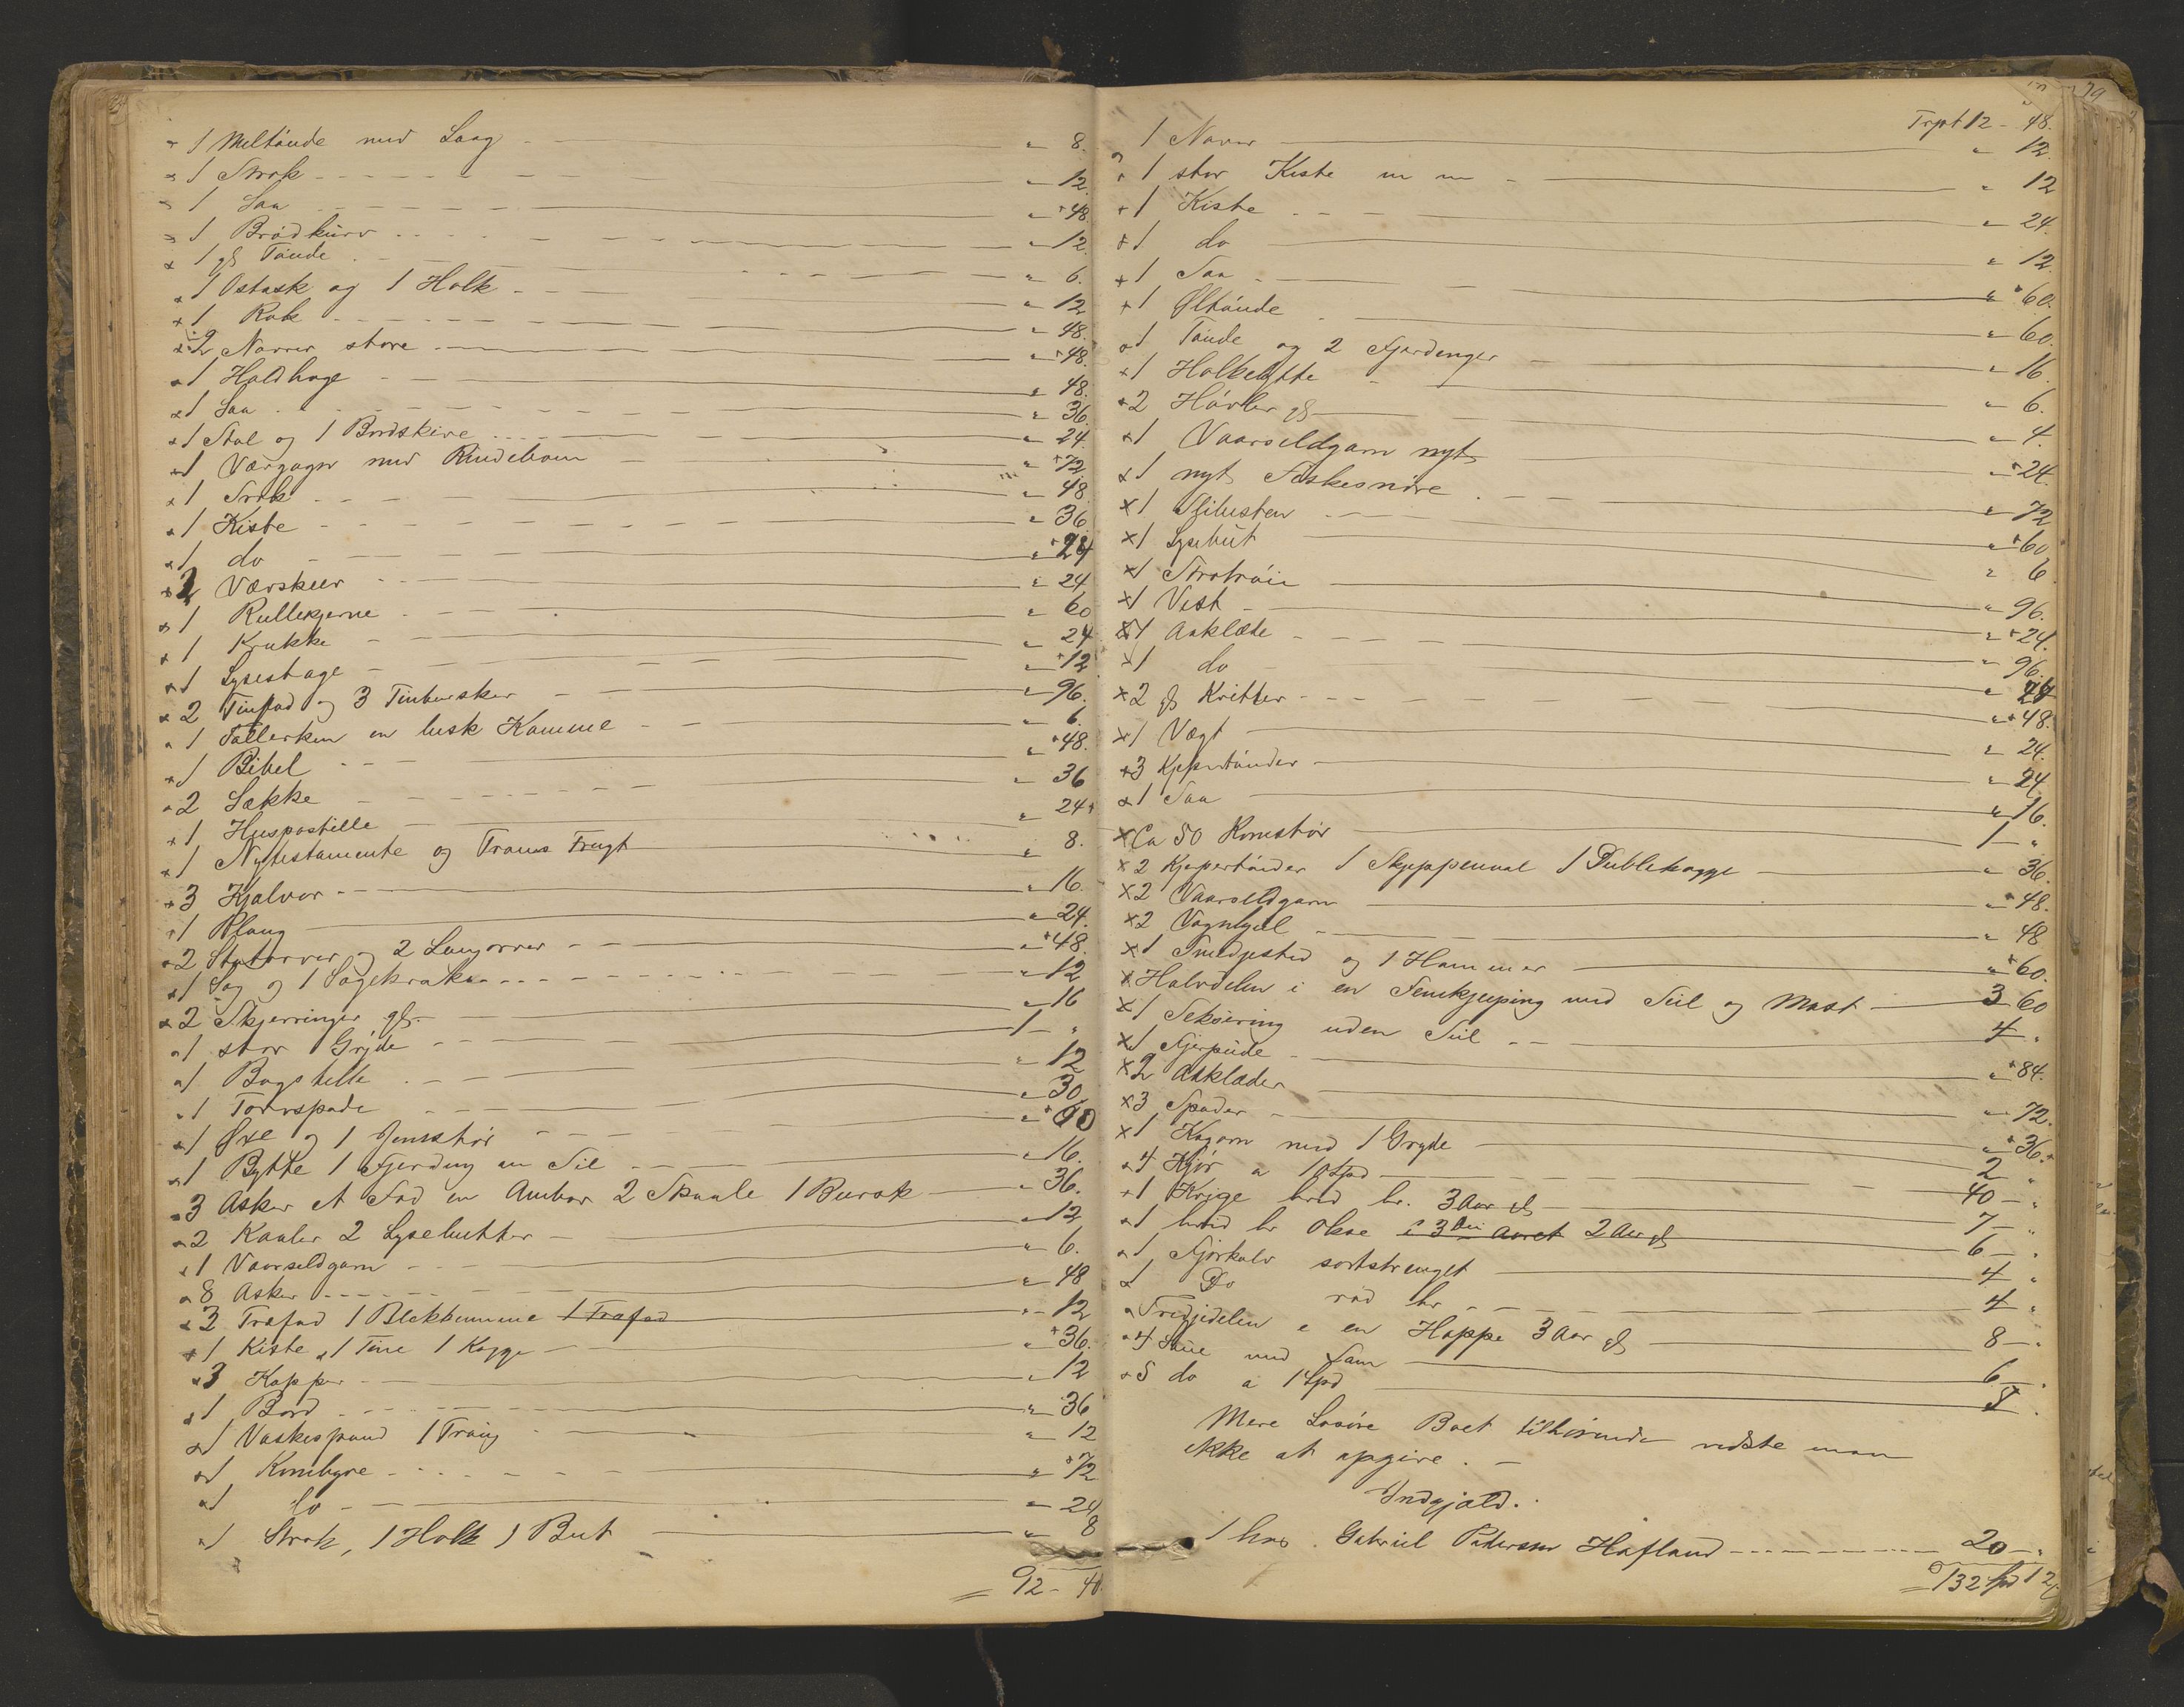 1 Meltönde med Laag " 8.
1 Strok " 12.
1 Saa " 48.
1 Brödkurv " 12
1 gl Tönde " 6.
1 Ostask og 1 Holk " 12
1 Rok " 48.
2 Navrer store " 48.
1 Haldhage " 48.
1 Saa " 36.
1 Stol og 1 Bordskive " 24.
1 Værgogn med " 72
1 Strok " 48.
1 Kiste " 36
1 do " 24
2 Værskeer " 24
1 Rullekjerne " 60
1 Krukke " 24
1 Lysestage " 12
2 Tinfad og 3 Tintersker " 96.
1 Tallerken en lusk Kamme " 6.
1 Bibel " 48.
2 Sække " 36
1 Huspostille " 24
1 Nytestamente og Troens Frugt " 8.
3 Kjalvor " 16.
1 Plaug " 24.
2 Stutorver og 2 Langorver " 48.
1 Sag og 1 Sagekrakk " 12
2 Skjerringer gl. " 16
1 stor Gryde 1 - "
1 Bagstelle " 12
1 Torvspade " 30
1 Öxe og 1 Jernstör " 60
1 Bytte 1 Fjerding en Sil " 16.
3 Asker et Fad en Ambar 2 Skaale 1 Burok " 36.
2 Kander 2 Lysebutter " 12
1 Vaarseldgarn " 6.
8 Asker " 48
3 Træfad 1 Blekkemme 1 Træfad " 12
1 Kiste 1 Tine 1 Kagge " 36.
3 Kopper " 12
1 Bord " 36
1 Vaskespand 1 Traug " 12
1 Kornbyre " 72
1 do " 24
1 Strok, 1 Holk 1 But " 8
= 92 - 40.
Trpt 12 - 48.
1 Naver " 12.
1 stor Kiste m m " 12
1 Kiste " 24.
1 do " 12.
1 Saa " 60.
1 Öltönde " 60.
1 Tönde og 2 Fjerdinger " 16.
1 Halkebytte " 6.
2 Hövler gl " 4.
1 Vaarseldgarn nyt " 24.
1 nyt Fiskesnöre " 72
1 Slibesten " 60
1 Lysebut " 6
1 Strotröie " 96.
1 Vest " 24.
1 Aaklæde " 96.
1 do " 24
2 gl Kritter " 48.
1 Vægt " 24.
3 Kjpertönder " 24.
1 Saa " 16.
Ca 50 Kornstör 1 - "
2 Kjepertönder 1 Skjeppemaal 1 Dublekagge " 36.
2 Vaarseldgarn " 48.
2 Vognhjul " 48
1 Smedjested og 1 Hammer " 60.
Halvdelen i en Femkjeiping med Seil og Mast 3 60
1 Seksering uden Seil 4 "
1 Fjerpude " 84.
2 Aaklæder " 72.
3 Spader " 36.
1 Kagovn med 1 Gryde 2 "
4 Kjör a 10 Spd 40 - "
1 Kvige hvid br. 3 Aar gl 7 - "
1 hvid br Okse i 3die Aaret 2 Aar gl 6 - "
1 Fjörkalv sortstrenget 4 "
1 Do röd br 4 "
Tredjedelen i en Hoppe 3 Aar gl 8 - "
4 Sauer med Lam 6 - "
5 do a 1 Spd 5 "
Mere Lösöre Boet tilhörende vidste man
ikke at opgive. -
Indgjæld.
1 hos Gabriel Pedersen Hafland 20 - "
= 132 Spd 12